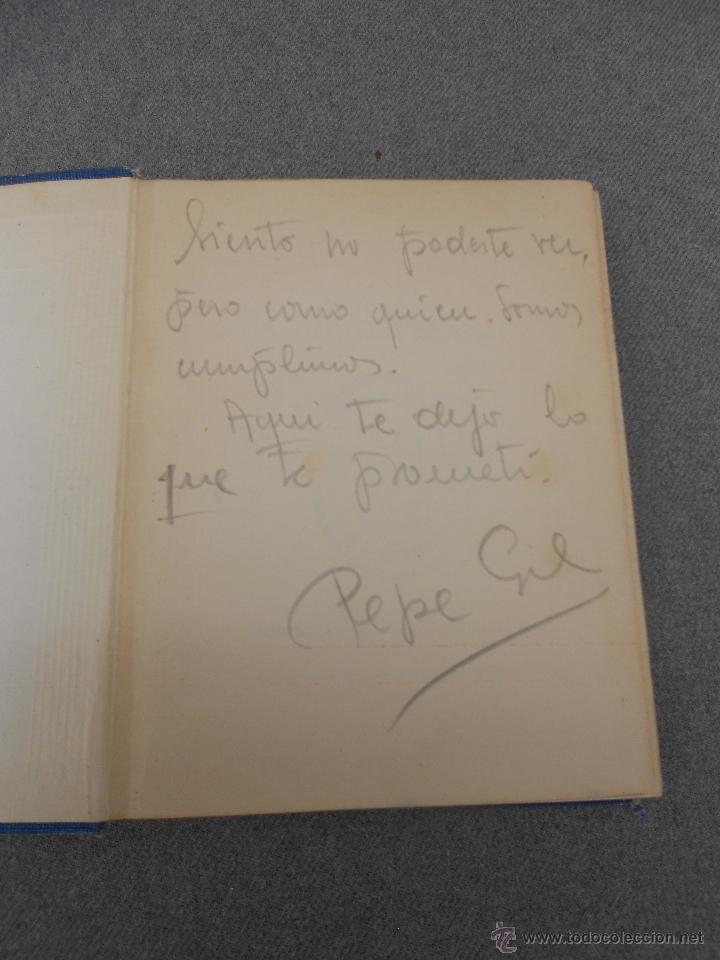 Siento no poderte ver,
pero como quien somos
cumplimos.
Aqui te dejo lo
que te prometí.
Pepe Gil
© www.todocoleccion.net